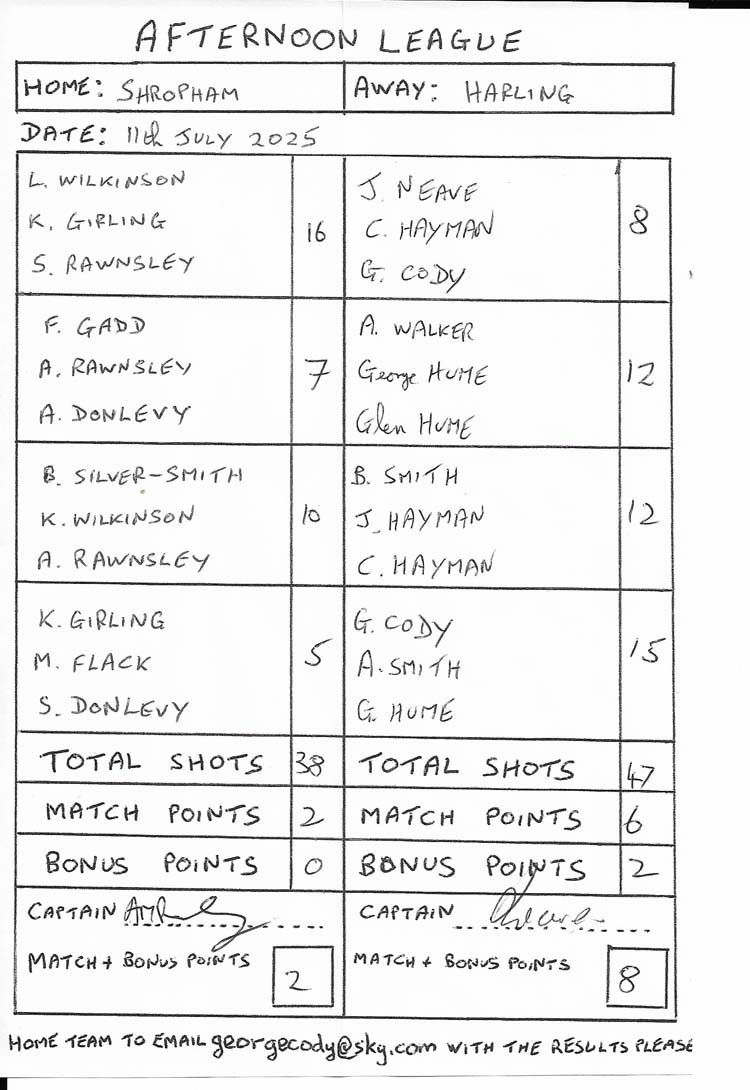 AFTERNOON LEAGUE
HOME: SHROPHAM AWAY: HARLING
DATE: 11th JULY 2025
L. WILKINSON
K. GIRLING
S. RAWNSLEY
16
J. NEAVE
C. HAYMAN
G. CODY
8
F. GADD
A. RAWNSLEY
A. DONLEVY
7
A. WALKER
George HUME
Glen HUME
12
B. SILVER-SMITH
K. WILKINSON
A. RAWNSLEY
10
B. SMITH
J. HAYMAN
C. HAYMAN
12
K. GIRLING
M. FLACK
S. DONLEVY
5
G. CODY
A. SMITH
G. HUME
15
TOTAL SHOTS 38 TOTAL SHOTS 47
MATCH POINTS 2 MATCH POINTS 6
BONUS POINTS 0 BONUS POINTS 2
CAPTAIN CAPTAIN
MATCH + BONUS POINTS 2 MATCH + BONUS POINTS 8
HOME TEAM TO EMAIL georgecody@sky.com WITH THE RESULTS PLEASE